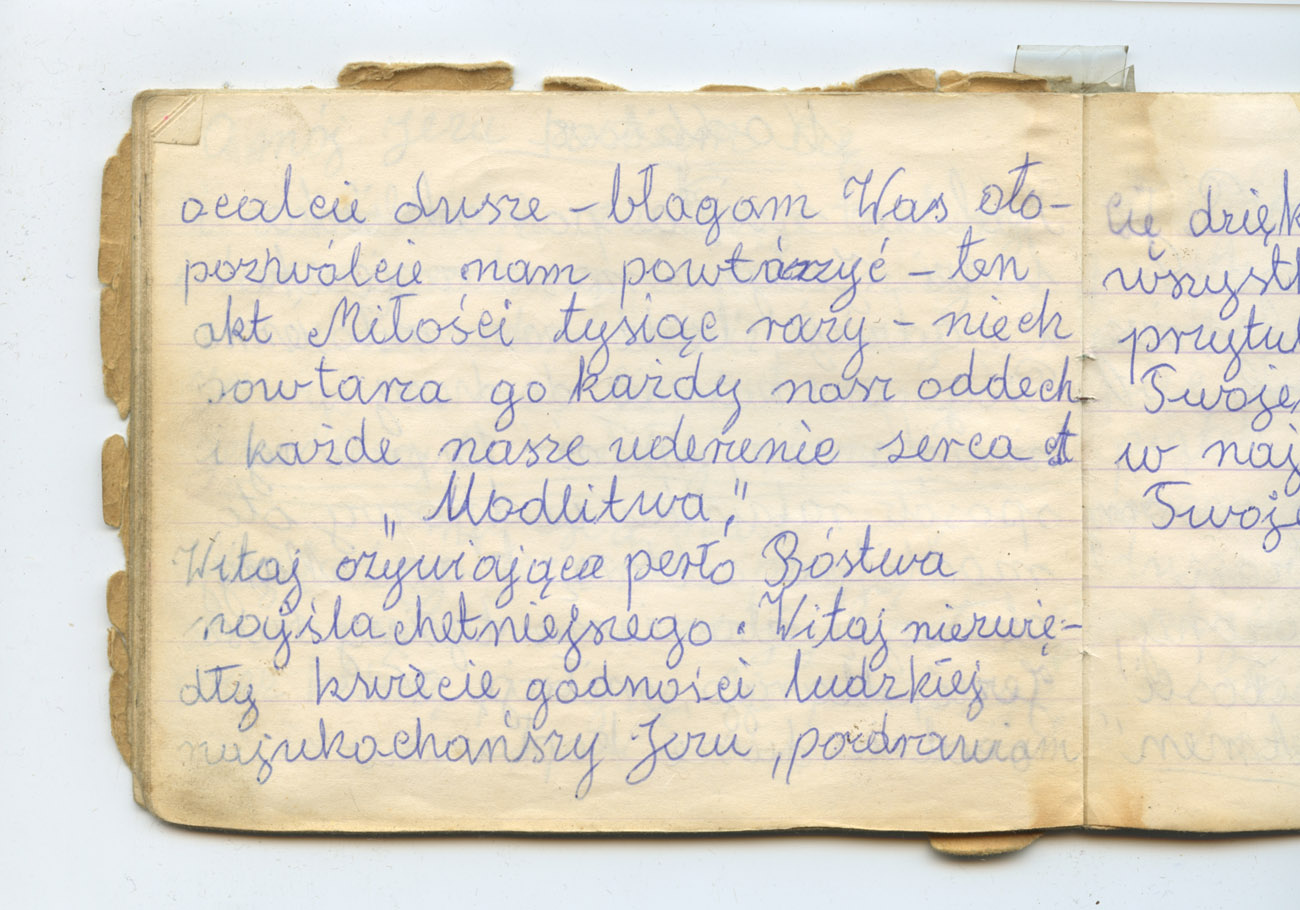 ocalcie dusze – błagam Was oto-
pozwólcie nam powtórzyć – ten
akt Miłości tysiąc razy – niech
powtarza go każdy nasz oddech
i każde nasze uderzenie serca
„Modlitwa"
Witaj ożywiająca perło Bóstwa
najślachetniejszego. Witaj niezwię-
dły kwiecie godności ludzkiej
najukochańszy Jezu, pozdrawiam
cię
wszyst
przytul
w naj